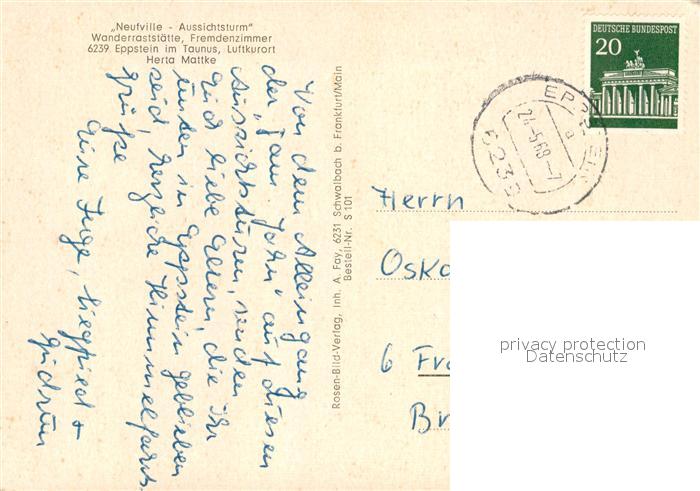 „Neufville - Aussichtsturm"
Wanderraststätte, Fremdenzimmer
6239 Eppstein im Taunus, Luftkurort
Herta Mattke
Von dem Alleingang
der „Fam. John" auf diesen
Aussichtsturm, senden
Euch liebe Eltern, die Ihr
unten in Eppstein geblieben
seid, herzliche Himmelfahrts-
grüße
Eure Inge, Siegfried +
Gudrun
Rosen-Bild-Verlag, Inh. A. Fay, 6231 Schwalbach b. Frankfurt/Main
Bestell-Nr. S 101
DEUTSCHE BUNDESPOST
20
EPPSTEIN
a
24.-5.68.-7
6239
Herrn
Oska
6 Fra
Br
privacy protection
Datenschutz